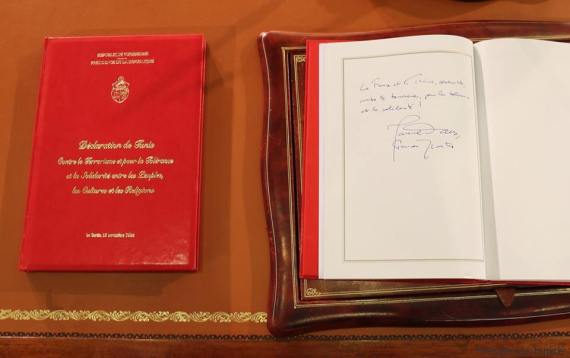 REPUBLIQUE TUNISIENNE
PRESIDENCE DE LA REPUBLIQUE
Déclaration de Tunis
Contre le Terrorisme et pour la Tolérance
et la Solidarité entre les Peuples,
les Cultures et les Religions
Le Bardo, novembre
La France et la Tunisie, ensemble
contre le terrorisme, pour la
et la solidarité !